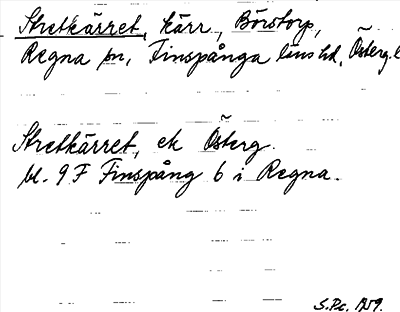 Stretkärret, kärr, Börstorp,
Regna sn, Finspånga läns hd, Österg. l
Stretkärret, ek Österg.
bl. 9 F Finspång 6 i Regna.
1959.